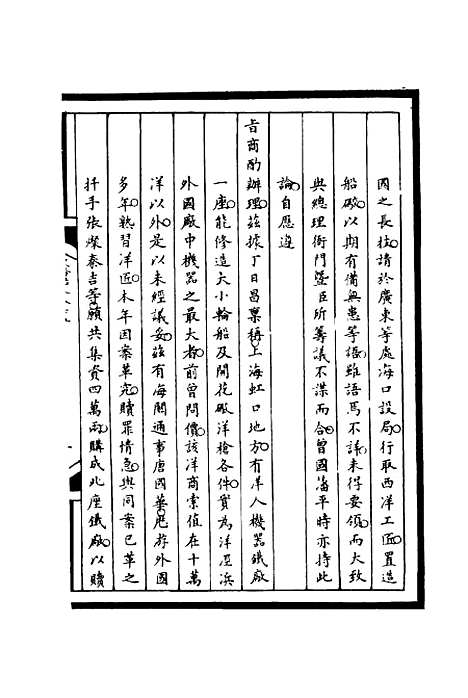 國之長技請於廣東等處海口設局行取西洋工匠置造
船礮以期有備無患等語雖語焉不詳未得要領而大致
與總理衙門暨臣所籌議不謀而合曾國藩平時亦持此
論自應遵
旨商酌辦理茲據丁日昌稟稱上海虹口地方有洋人機器鐵廠
一座能修造大小輪船及開花礮洋槍各件實為洋涇浜
外國廠中機器之最大者前曾問價該洋商索值在十萬
洋以外是以未經議妥茲有海關通事唐國華歷游外國
多年熟習洋匠本年因案革究贖罪情急與同案已革之
扦手張燦秦吉等願共集資四萬兩購成此座鐵廠以贖